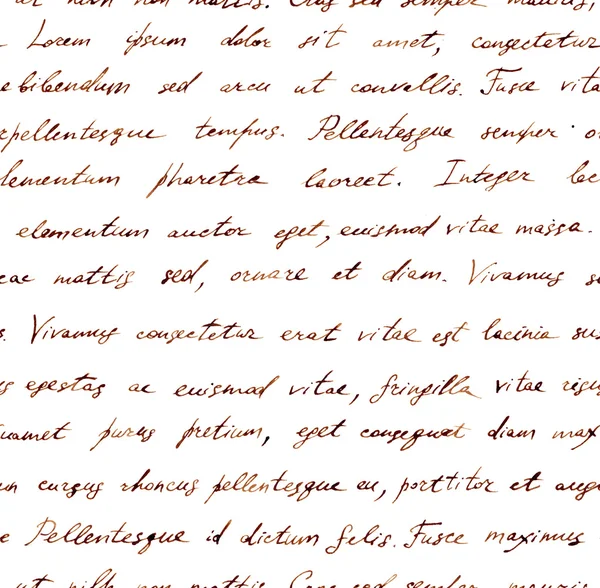 non mattis. Cras sed semper mauris,
Lorem ipsum dolor sit amet, consectetur
bibendum sed arcu ut convallis. Fusce vita
pellentesque tempus. Pellentesque semper
lementum pharetra laoreet. Integer lac
elementum auctor eget, euismod vitae massa.
ac mattis sed, ornare et diam. Vivamus
s. Vivamus consectetur erat vitae est lacinia sus
us egestas ac euismod vitae, fringilla vitae risu
uamet purus pretium, eget consequat diam max
un cursus rhoncus pellentesque eu, porttitor et augu
e Pellentesque id dictum felis. Fusce maximus
ut nibh non mattis. Cras sed semper mauris